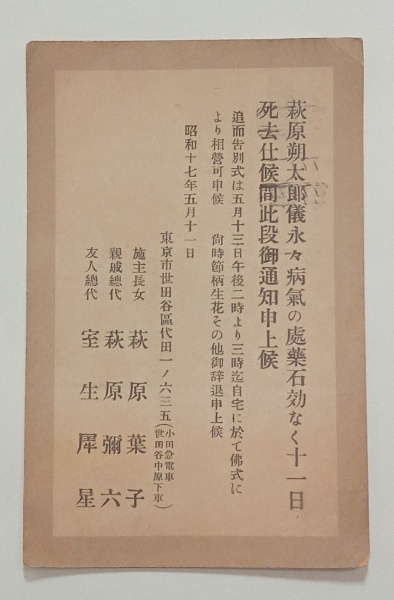 萩原朔太郎儀永々病氣の處藥石効なく十一日
死去仕候間此段御通知申上候
追而告別式は五月十三日午後二時より三時迄自宅に於て佛式に
より相營可申候　尙時節柄生花その他御辞退申上候
昭和十七年五月十一日
東京市世田谷區代田一ノ六三五(小田急電車世田谷中原下車)
施主長女　萩原葉子
親戚總代　萩原彌六
友人總代　室生犀星